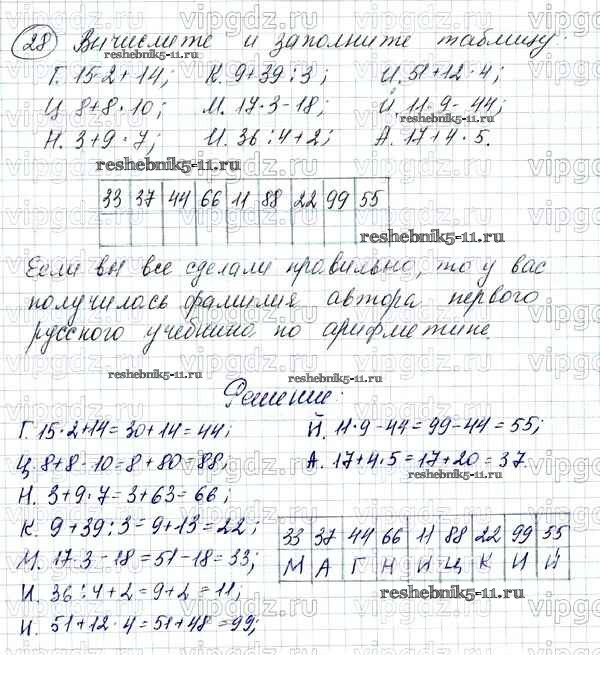 28 Вычислите и заполните таблицу:
Г. 15·2+14; К. 9+39:3; И. 51+12·4;
Ц. 8+8·10; М. 17·3-18; Й. 11·9-44;
Н. 3+9·7; И. 36:4+2; А. 17+4·5.
reshebnik5-11.ru
reshebnik5-11.ru
reshebnik5-11.ru
33 37 44 66 11 88 22 99 55
reshebnik5-11.ru
Если вы все сделали правильно, то у вас
получилась фамилия автора первого
русского учебника по арифметике.
reshebnik5-11.ru
reshebnik5-11.ru
Решение:
Г. 15·2+14=30+14=44; Й. 11·9-44=99-44=55;
Ц. 8+8·10=8+80=88; А. 17+4·5=17+20=37.
reshebnik5-11.ru
Н. 3+9·7=3+63=66;
К. 9+39:3=9+13=22;
М. 17·3-18=51-18=33;
И. 36:4+2=9+2=11;
И. 51+12·4=51+48=99;
33 37 44 66 11 88 22 99 55
М А Г Н И Ц К И Й
reshebnik5-11.ru
vipgdz.ru